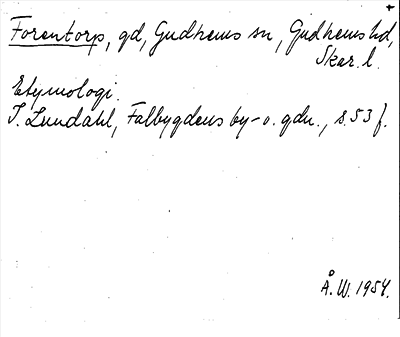 Forentorp, gd, Gudhems sn, Gudhems hd,
Skar. l.
Etymologi.
I. Lundahl, Falbygdens by- o. gdn., s. 53 f.
Å. W. 1954.